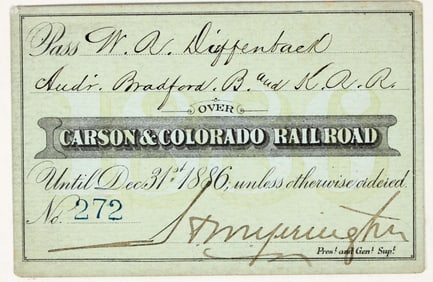 Pass W. A. Dieffenback
Audr. Bradford B. and K. A. R.
OVER
CARSON & COLORADO RAILROAD
Until Dec. 31st 1886, unless otherwise ordered.
No. 272
H M Yerington
Prest. and Genl. Supt.
1886